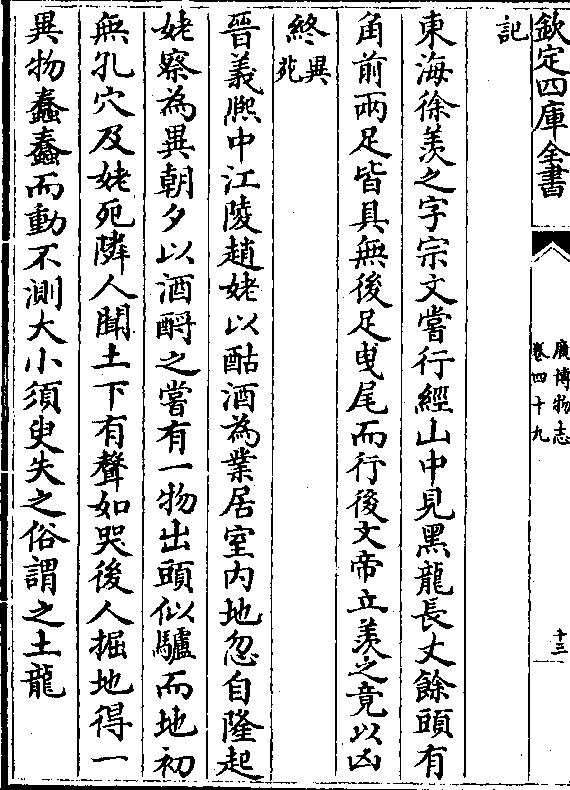 欽定四庫全書
廣博物志
卷四十九
十三
記
東海徐羨之字宗文嘗行經山中見黑龍長丈餘頭有
角前兩足皆具無後足曳尾而行後文帝立羨之竟以凶
終異苑
晉義熈中江陵趙姥以酤酒為業居室内地忽自隆起
姥察為異朝夕以酒酹之嘗有一物出頭似驢而地初
無孔穴及姥死隣人聞土下有聲如哭後人掘地得一
異物蠢蠢而動不測大小須臾失之俗謂之土龍